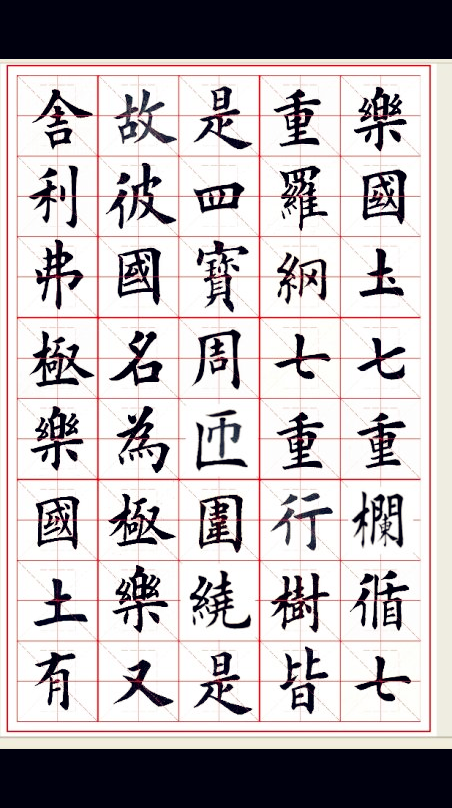 樂國圡七重欄循七
重羅網七重行樹皆
是四寶周匝圍繞是
故彼國名為極樂又
舍利弗極樂國土有